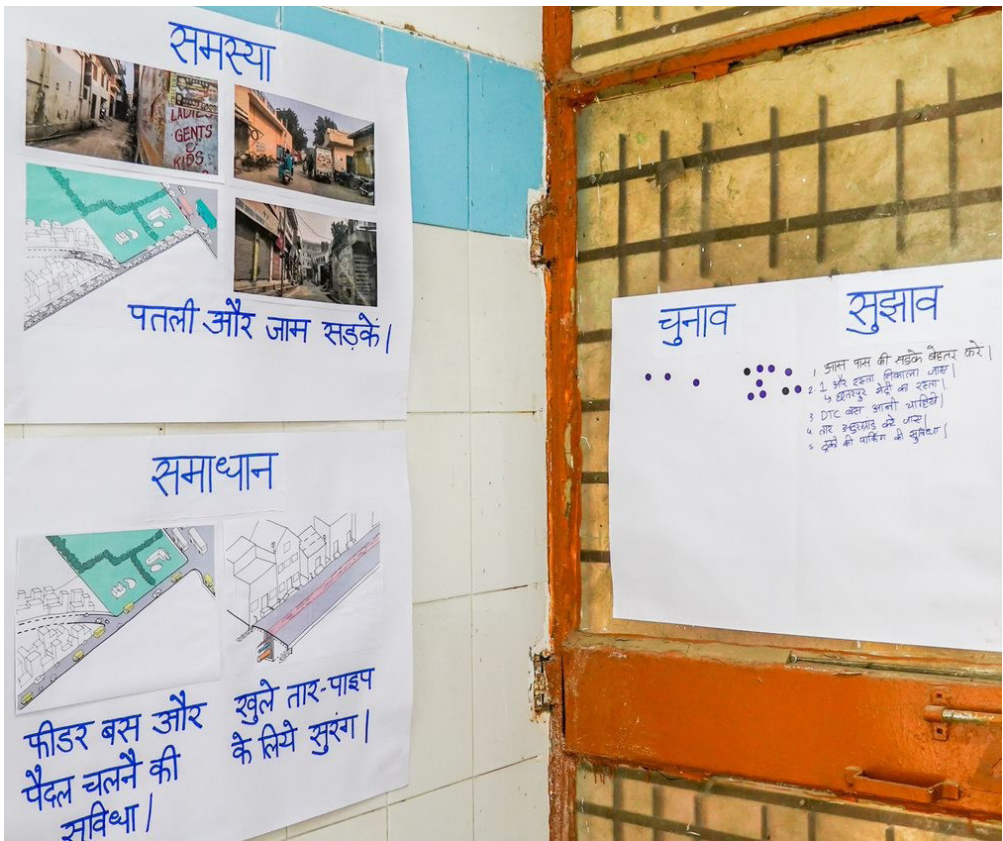 समस्या
LADIES
GENTS
&
KIDS
पतली और जाम सड़कें।
समाधान
फीडर बस और
पैदल चलनै की
सुविधा।
खुले तार-पाइप
के लिये सुरंग।
चुनाव
सुझाव
1 आस पास की सडके बेहतर करे।
2. 1 और रस्ता निकाला जाए।
↳ छतरपुर मेट्रो का रस्ता।
3 DTC बस आनी चाहिये।
4. तार अंडरग्राउंड करे जाए।
5. ट्रको की पार्किंग की सुविधा।